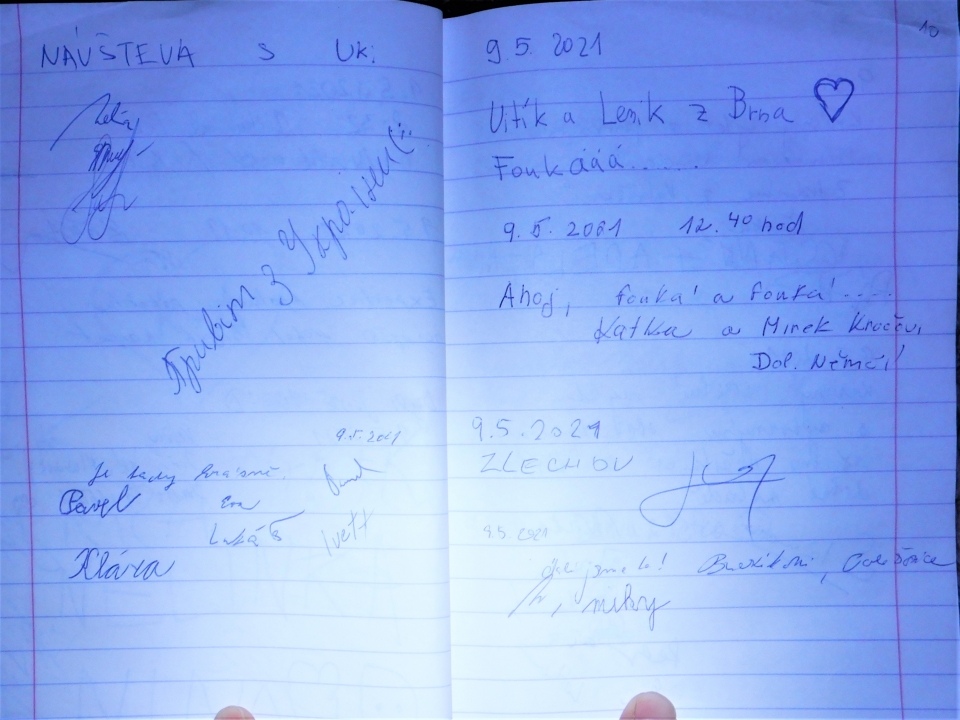 NÁVŠTEVA S Uk:
Привіт З України
9.5.2021
Je tady krásně.
Pavel Eva
Lukáš Ivett
Klára
10
9.5. 2021
Vitík a Leník z Brna
Foukááá......
9.5. 2021 12.40 hod
Ahoj, fouká a fouká....
Katka a Mirek
Dol. Němčí
9.5.2021
ZLECHOV
9.5.2021
jsme to!